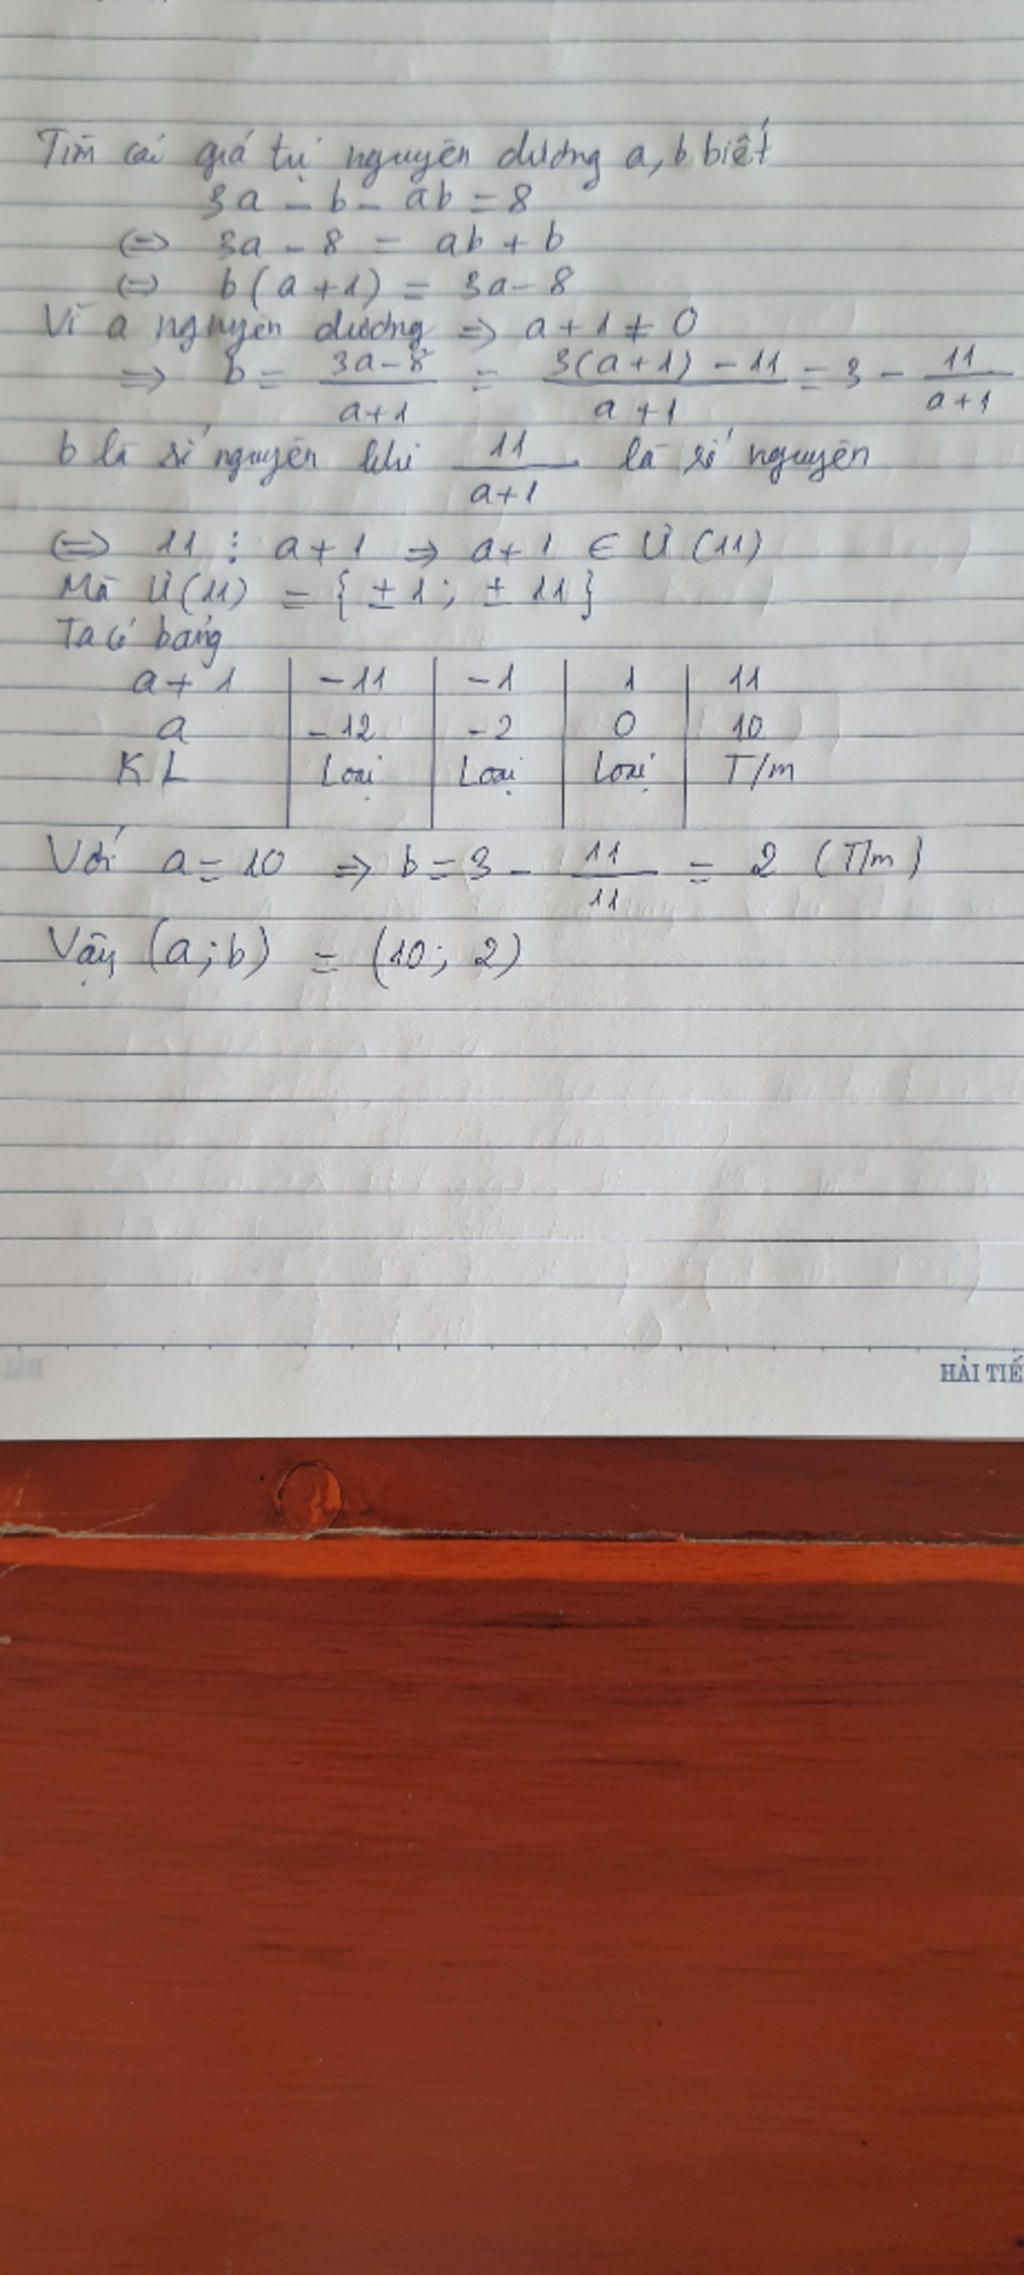 Tìm các giá trị nguyên dương a, b biết
3a - b - ab = 8
(=) 3a - 8 = ab + b
(=) b(a+1) = 3a - 8
Vì a nguyên dương => a + 1 ≠ 0
=> b = \frac{3a-8}{a+1} = \frac{3(a+1) - 11}{a+1} = 3 - \frac{11}{a+1}
b là số nguyên khi \frac{11}{a+1} là số nguyên
(=) 11 ⋮ a+1 => a+1 ∈ Ư(11)
Mà Ư(11) = {±1; ±11}
Ta có bảng
a+1 | -11 | -1 | 1 | 11
a | -12 | -2 | 0 | 10
KL | Loại | Loại | Loại | T/m
Với a = 10 => b = 3 - \frac{11}{11} = 2 (T/m)
Vậy (a; b) = (10; 2)
HẢI TIẾ